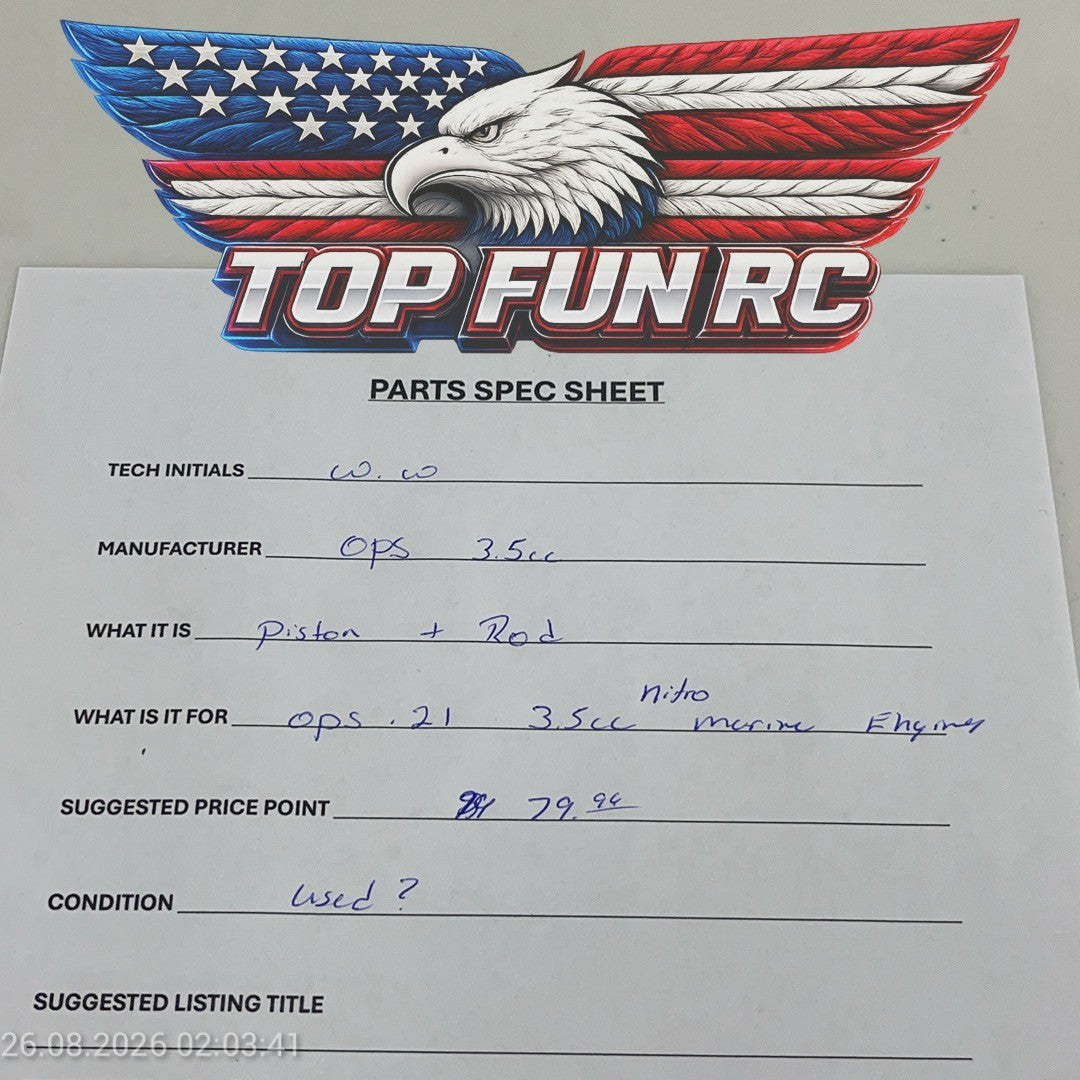 TOP FUN RC
PARTS SPEC SHEET
TECH INITIALS W. W
MANUFACTURER OPS 3.5cc
WHAT IT IS Piston + Rod
nitro
WHAT IS IT FOR OPS .21 3.5cc marine Engines
SUGGESTED PRICE POINT 79.94
CONDITION Used ?
SUGGESTED LISTING TITLE
26.08.2026 02:03:41